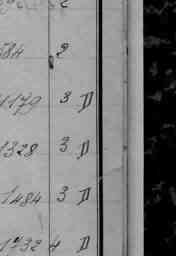 584 2
1179 3 D
1328 3 D
1484 3 D
1732 4 D